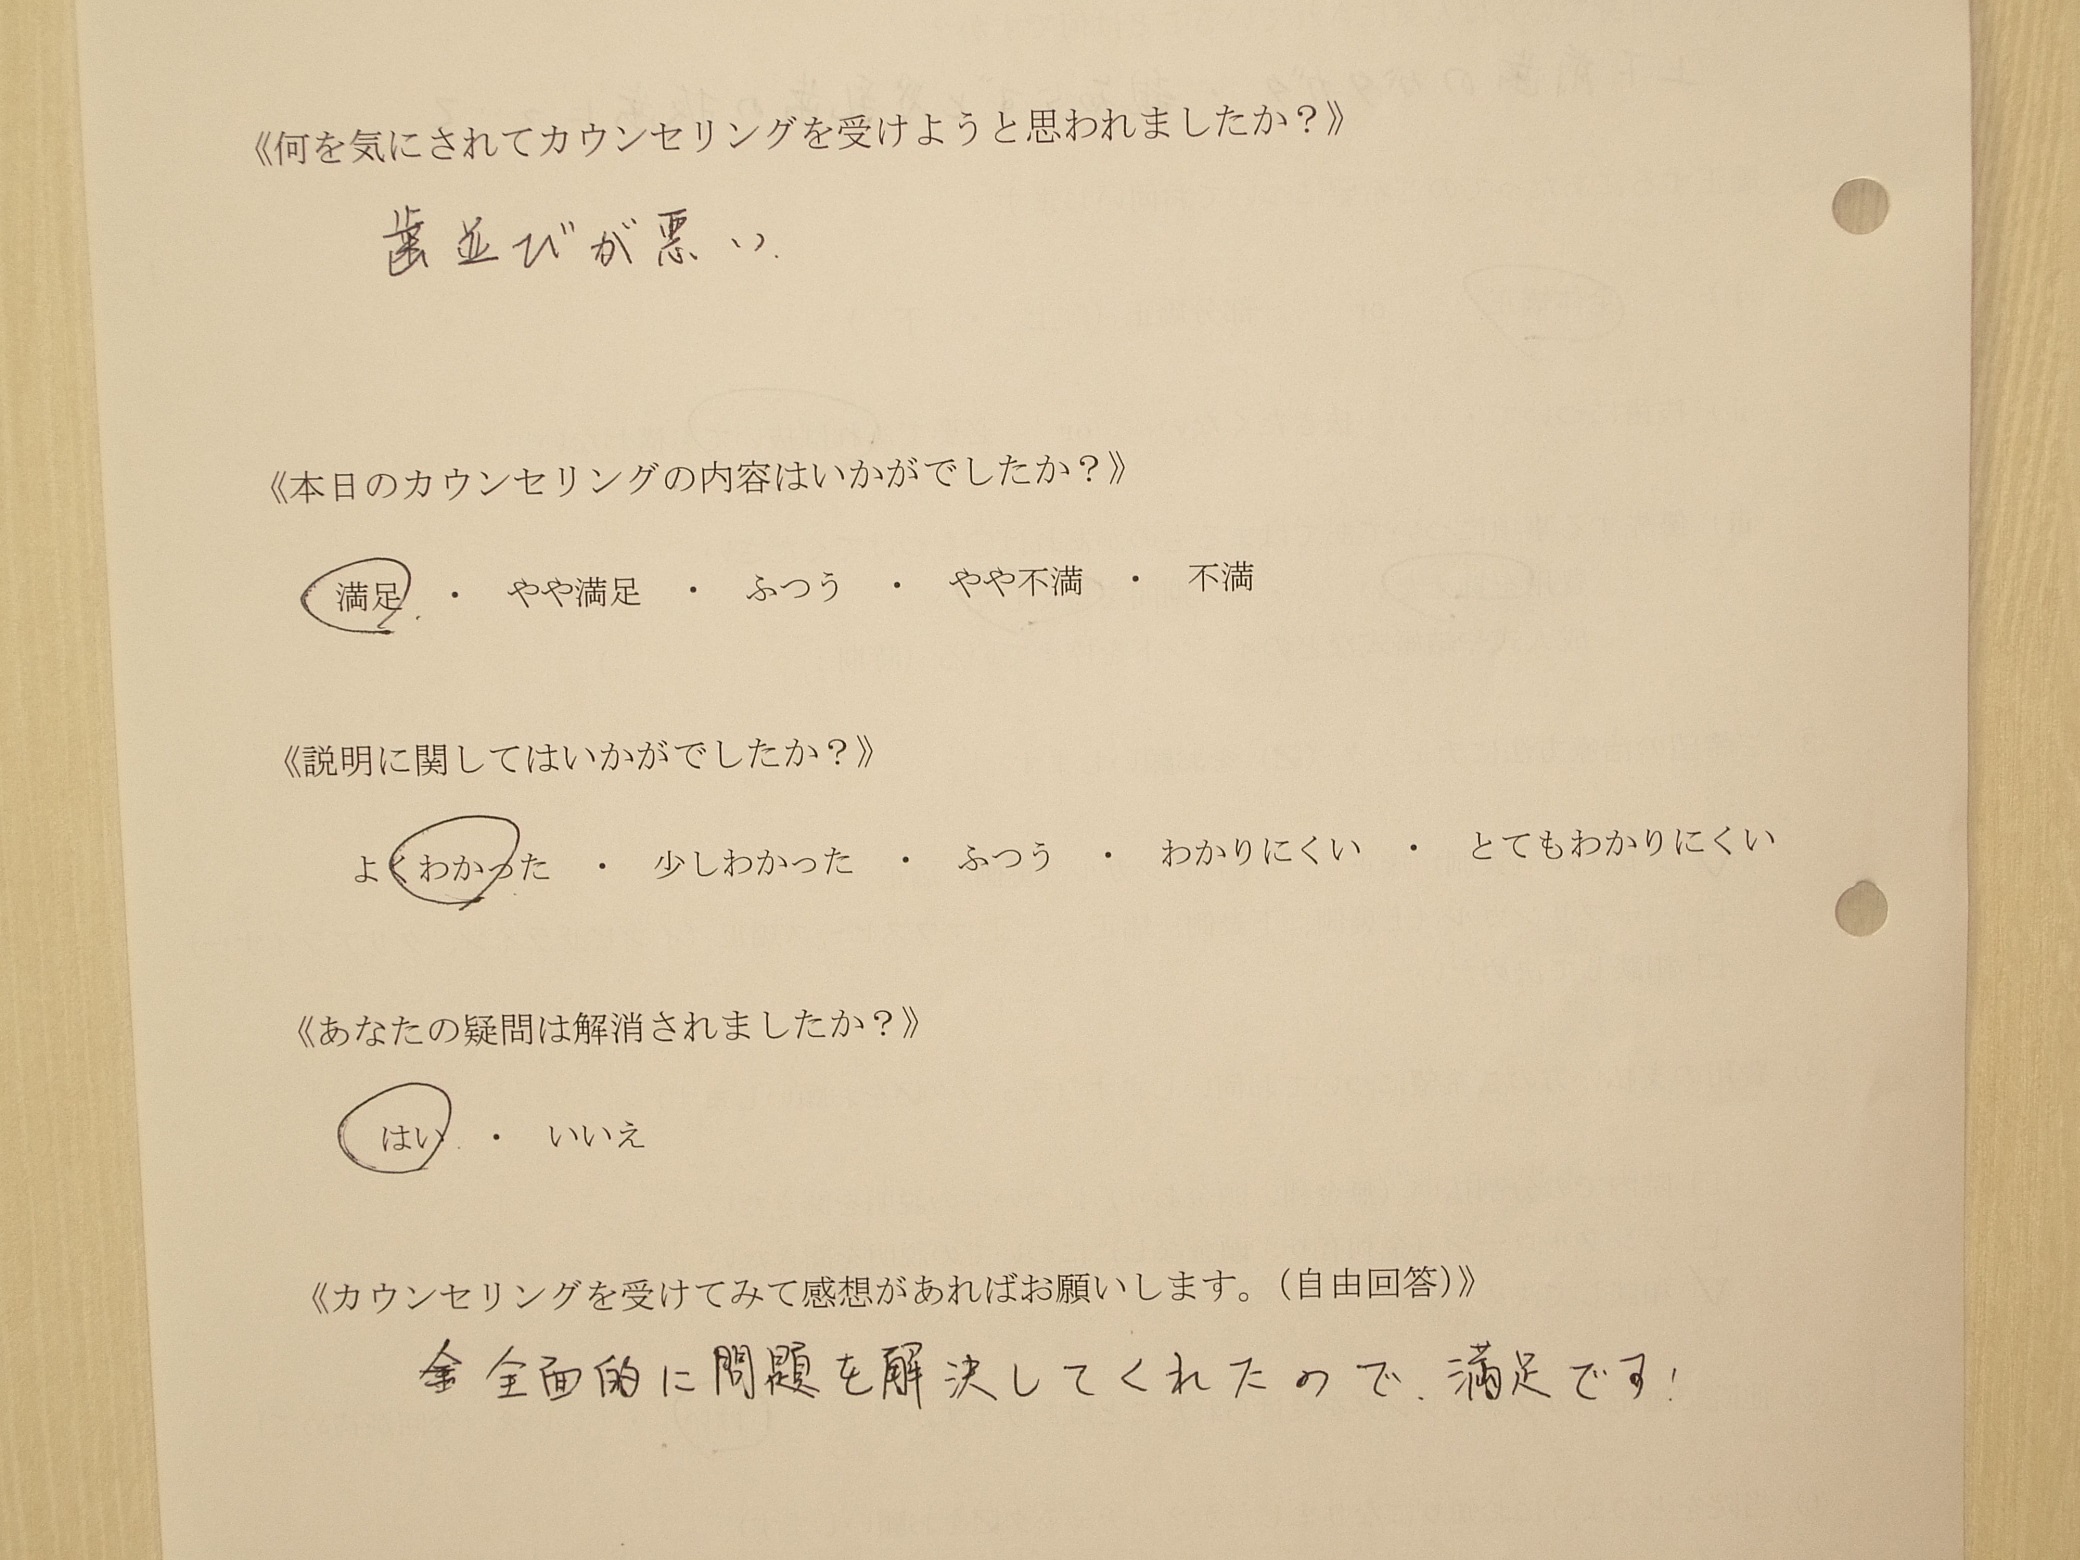 《何を気にされてカウンセリングを受けようと思われましたか？》
歯並びが悪い.
《本日のカウンセリングの内容はいかがでしたか？》
満足 ・ やや満足 ・ ふつう ・ やや不満 ・ 不満
《説明に関してはいかがでしたか？》
よくわかった ・ 少しわかった ・ ふつう ・ わかりにくい ・ とてもわかりにくい
《あなたの疑問は解消されましたか？》
はい ・ いいえ
《カウンセリングを受けてみて感想があればお願いします。（自由回答）》
全面的に問題を解決してくれたので、満足です!